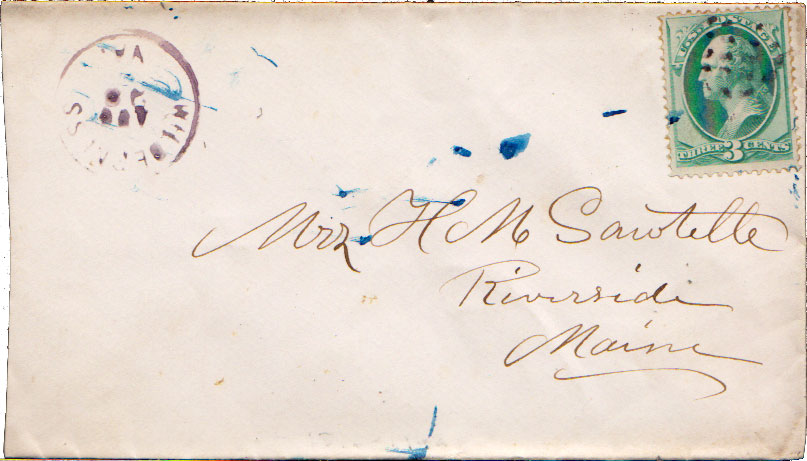 U.S. POSTAGE
THREE 3 CENTS
VA.
Miss H M Sawtelle
Riverside
Maine